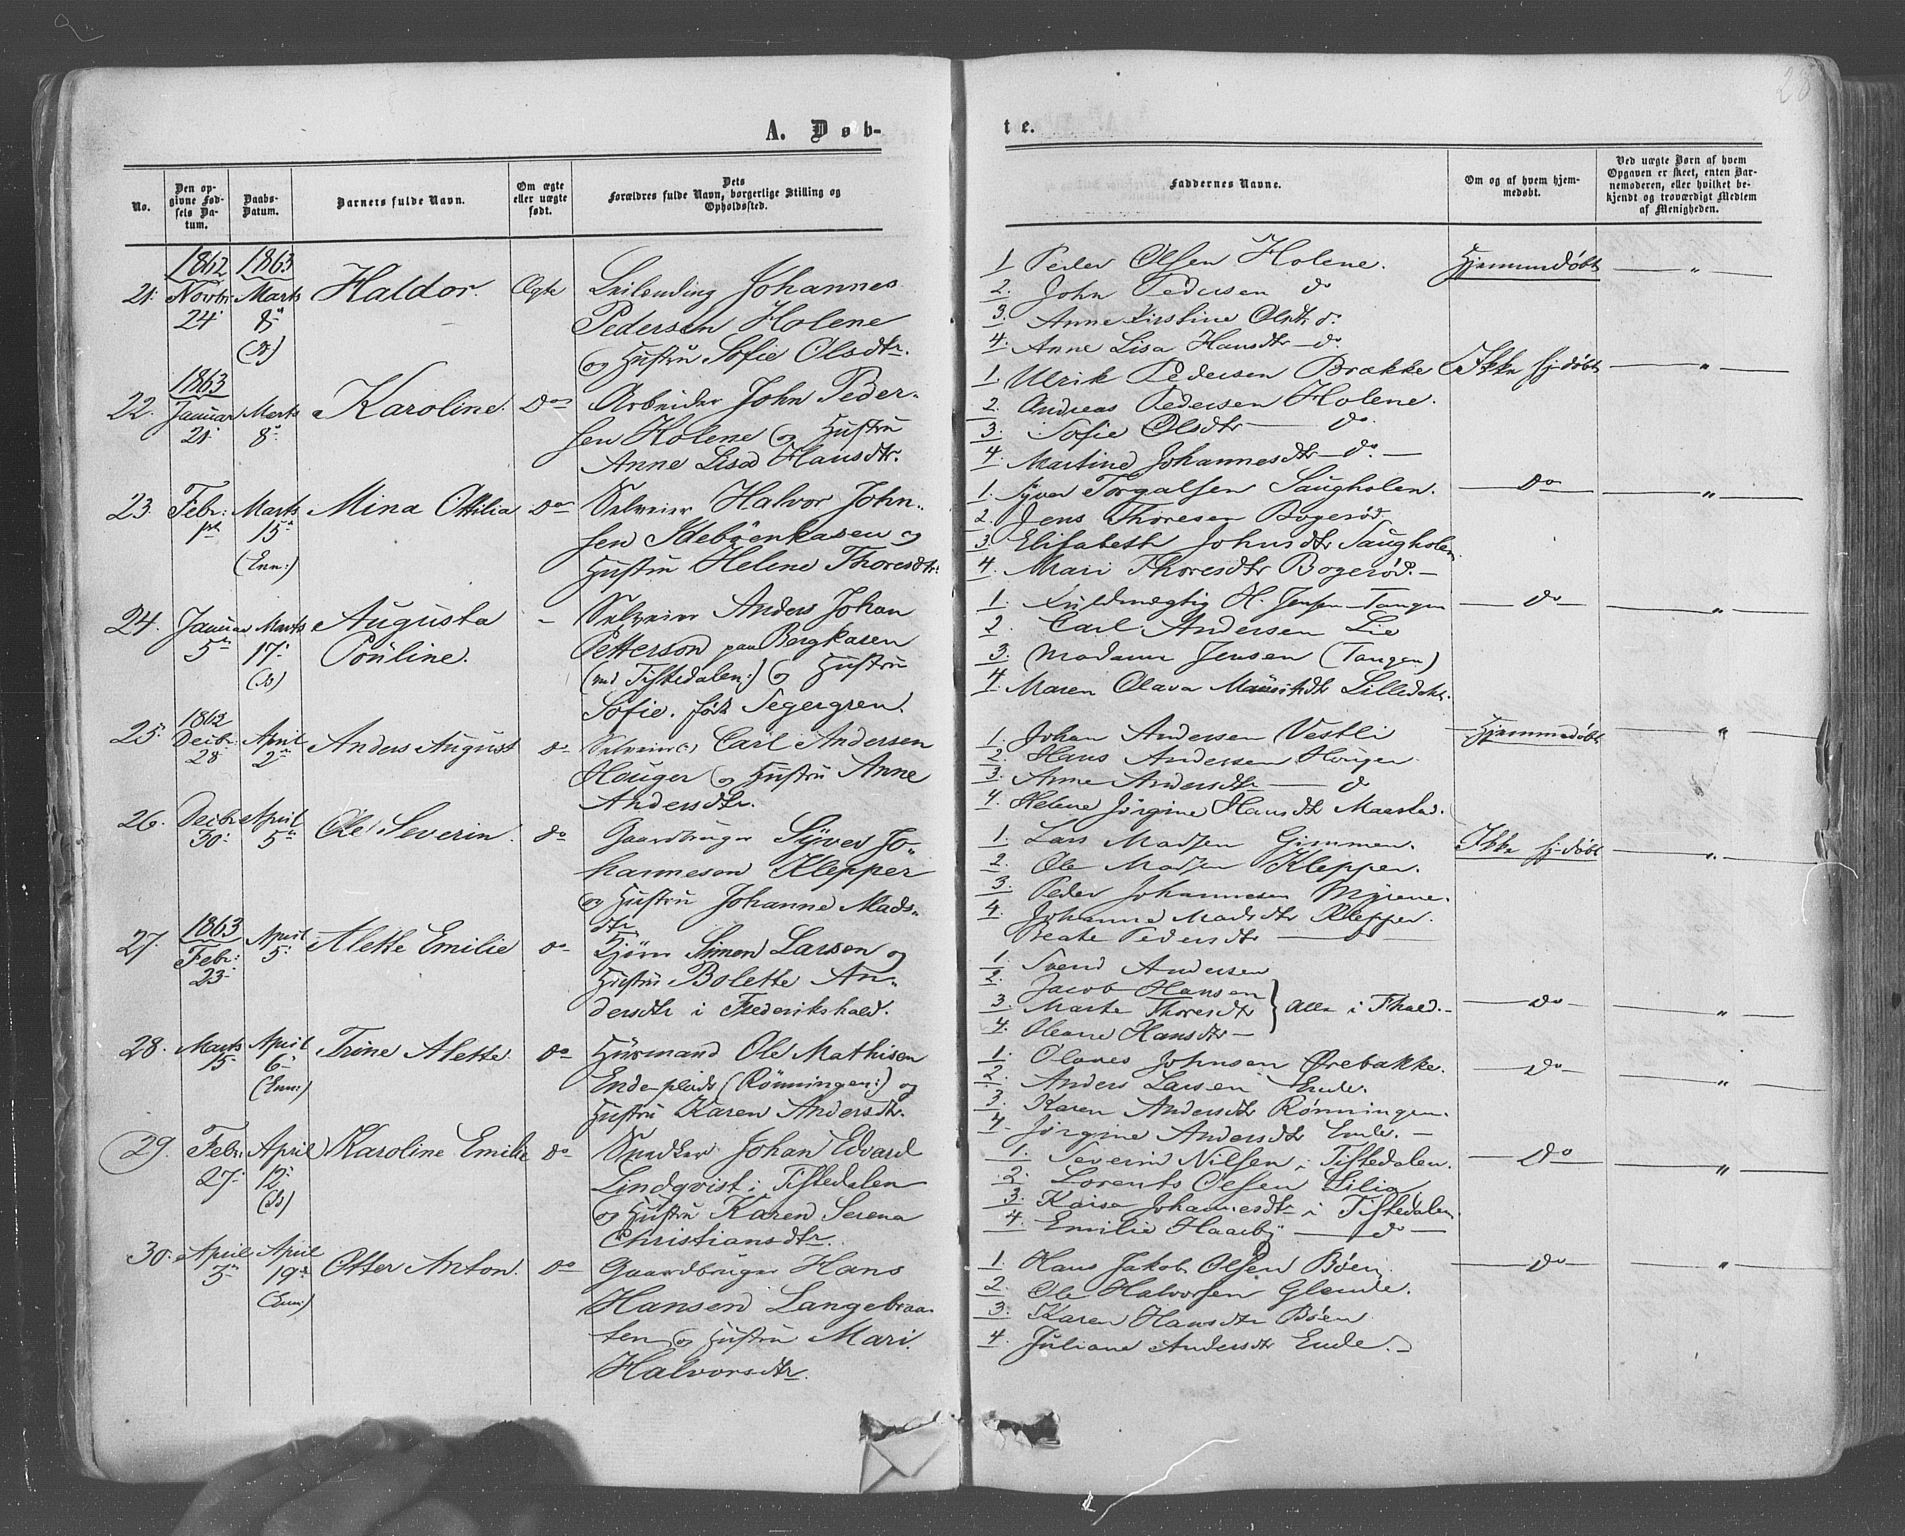 28
A. Døb-
te.
No.
Den op-
givne Fød-
sels Da-
tum.
Daabs-
Datum.
Barnets fulde Navn.
Om ægte
eller uægte
født.
Dets
Forældres fulde Navn, borgerlige Stilling og
Opholdssted.
Faddernes Navne.
Om og af hvem hjem-
medøbt.
Ved uægte Børn af hvem
Opgaven er skeet, enten Bar-
nemoderen, eller hvilket be-
kjendt og troværdigt Medlem
af Menigheden.
21. 1862 Novbr 24 1863 Marts 8 Haldor. Ægte Leilending Johannes
Pedersen Holene
og Hustru Sofie Olsdtr.
1 Peder Olsen Holene. Hjemmedøbt — „ —
2. John Pedersen do
3. Anne Kirstine Olsdtr do
4. Anne Lisa Hansdtr — do
22. 1863 Januar 21 Marts 8 Karoline. Do Arbeider John Peder-
sen Holene og Hustru
Anne Lisa Hansdtr.
1. Ulrik Pedersen Brække Ikke hj-døbt — „ —
2. Andreas Pedersen Holene.
3. Sofie Olsdtr — do
4. Martine Johannesdtr — do —
23. Febr: 1st Marts 15 (Enn:) Mina Ottilia Do Selveier Halvor John-
sen Idebøenkasen og
Hustru Helene Thoresdtr:
1. Syver Torgalsen Saugholen. — Do — „ —
2. Jens Thoresen Bogerød
3. Elisabeth Johnsdtr Saugholen.
4. Mari Thoresdtr Bogerød. —
24. Januar 5 Marts 17 Augusta
Pouline. - Selveier Anders Johan
Petterson paa Bergkasen
(ved Tistedalen:) og Hustru
Sofie. født Segergren.
1. Fuldmægtig H. Jensen Tangen — do — „ —
2. Carl Andersen Lie
3. Madame Jensen (Tangen)
4. Maren Olava Lilledal.
25. 1862 Decbr 28 April 2 Anders August do Selveier Carl Andersen
Houger og Hustru Anne
Andersdtr.
1. Johan Andersen Vestli Hjemmedøbt — „ —
2. Hans Andersen Hougen
3. Anne Andersdtr — do
4. Helene Jørgine Hansdtr
26. Decbr 30 April 5 Ole Severin. do Gaardbruger Syver Jo-
hannesen Klepper
og Hustru Johanne Mads-
dtr
1. Lars Madsen Gimmen. Ikke hj-døbt — „ —
2. Ole Madsen Klepper.
3. Peder Johannesen Myrene.
4. Johanne Madsdtr Klepper.
Beate Pedersdtr — do —
27. 1863 Febr: 23 April 5 Alette Emilie do Simon Larsen og
Hustru Bolette An-
dersdtr i Frederikshald.
1. Svend Andersen
2. Jacob Hansen
3. Marte Thoresdtr } Alle i Fhald. — do — „ —
4. Oleane Hansdtr —
28. Marts 15 April 6 (Enn:) Trine Alette. do Huusmand Ole Mathisen
Ende-plads (Rønningen:) og
Hustru Karen Andersdtr.
1. Olaves Johnsen Ørebakke. — do — „ —
2. Anders Larsen Ende.
3. Karen Andersdtr Rønningen.
4. Jørgine Andersdtr Ende. —
29. Febr 27 April 12 Karoline Emilie do Snedker Johan Edvard
Lindqvist i Tistedalen
og Hustru Karen Serena
Christiansdtr.
1. Severin Nilsen i Tistedalen. — Do — „ —
2. Lorents Olsen Lilia
3. Kaisa Johannesdtr i Tistedalen
4. Emilie Haaeby — do —
30. April 3 April 19 (Enn:) Otter Anton. do Gaardbruger Hans
Hansen Langebraa-
ten og Hustru Mari
Halvorsdtr.
1. Hans Jakob Olsen Bøen — do — „ —
2. Ole Halvorsen Glende.
3. Karen Hansdtr Bøen
4. Juliane Andersdtr Ende. —